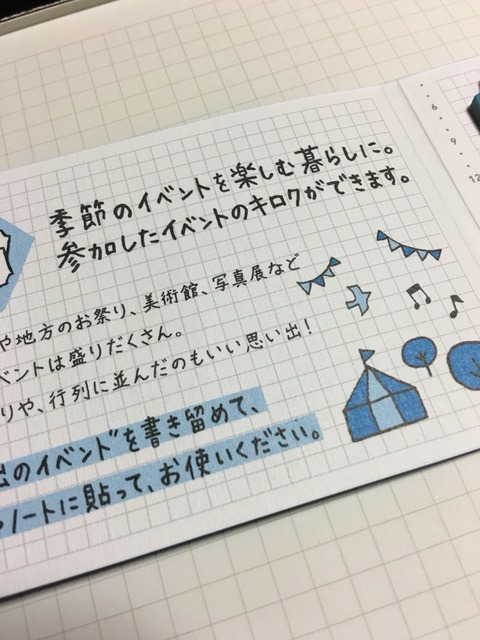 季節のイベントを楽しむ暮らしに。
参加したイベントのキロクができます。
や地方のお祭り、美術館、写真展など
ベントは盛りだくさん。
りや、行列に並んだのもいい思い出!
出のイベント”を書き留めて、
ノートに貼って、お使いください。
6
9
12